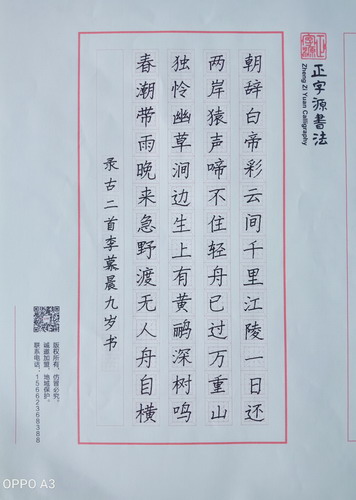 正字源書法
Zheng Zi Yuan Calligraphy
朝辞白帝彩云间千里江陵一日还
两岸猿声啼不住轻舟已过万重山
独怜幽草涧边生上有黄鹂深树鸣
春潮带雨晚来急野渡无人舟自横
录古二首李慕晨九岁书
版权所有，仿冒必究。
诚邀加盟，地域保护。
联系电话：15662368388
OPPO A3